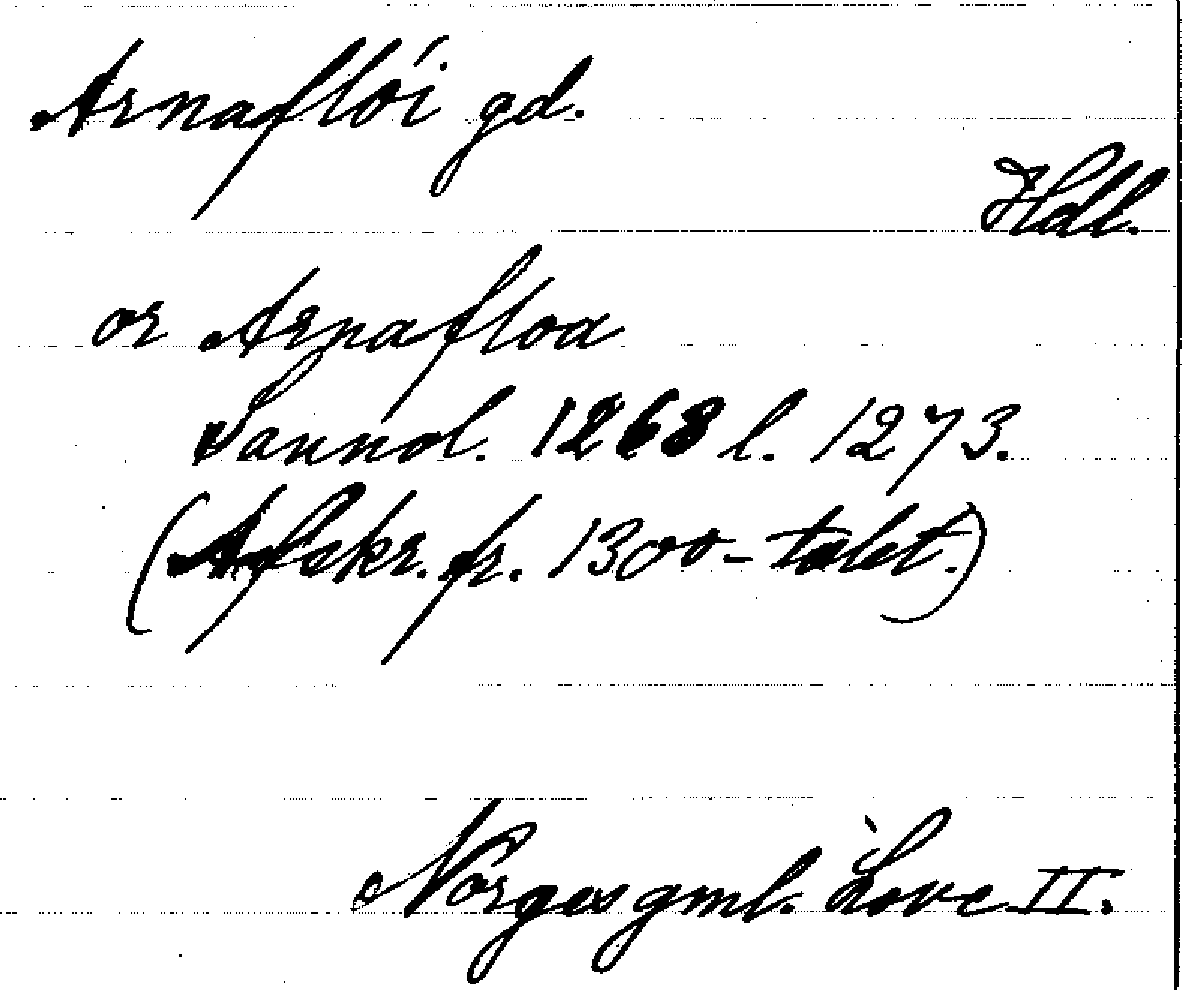 Arnaflói gd.
Hdl.
or Arnafloa
Sannol. 1268 l. 1273.
(Afskr. fr. 1300-talet.)
Norges gml. Love II.